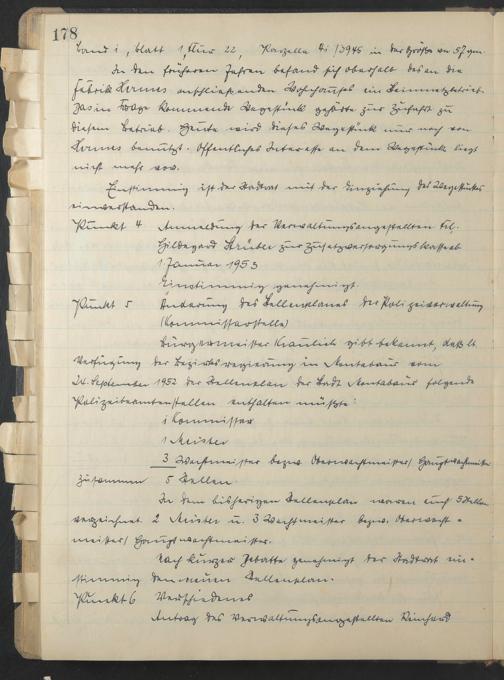 178
Band 1, Blatt 1, Flur 22, Parzelle 41/3945 in der Größe von 57 qm.
In den früheren Jahren befand sich oberhalb des an die
Fabrik Hermes anschließenden Wohnhauses ein
Das in Frage kommende Wegestück gehörte zur Zufahrt zu
diesem Betrieb. Heute wird dieses Wegestück nur noch von
Hermes benutzt. Öffentliches Interesse an dem Wegestück liegt
nicht mehr vor.
Einstimmig ist der Stadtrat mit der Einziehung des Wegestückes
einverstanden.
Punkt 4 Anmeldung der Verwaltungsangestellten Frl.
Hildegard zur Zusatzversorgungskasse ab
1. Januar 1953
Einstimmig genehmigt.
Punkt 5 Änderung des Stellenplanes der Polizeiverwaltung
(Kommissarstelle)
Bürgermeister Kraulich gibt bekannt, daß lt.
Verfügung der Bezirksregierung in Montabaur vom
24. September 1952 der Stellenplan der Stadt Montabaur folgende
Polizeibeamtenstellen enthalten müßte:
1 Kommissar
1 Meister
3 Wachtmeister bezw. Oberwachtmeister/Hauptwachtmeister
zusammen 5 Stellen
In dem bisherigen Stellenplan waren auch 5 Stellen
verzeichnet 2 Meister u. 3 Wachtmeister bezw. Oberwacht-
meister/Hauptwachtmeister.
Nach kurzer Debatte genehmigt der Stadtrat ein-
stimmig den neuen Stellenplan.
Punkt 6 Verschiedenes
Antrag des Verwaltungsangestellten Reinhard